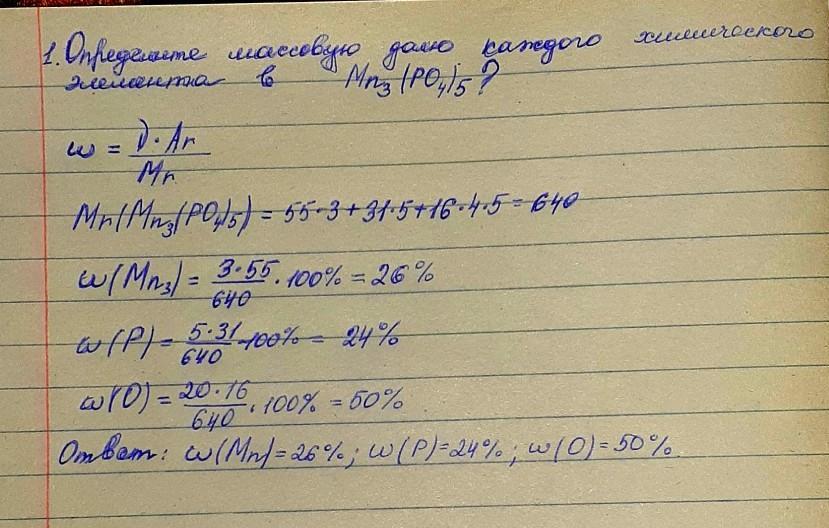 1. Определите массовую долю каждого химического
элемента в Mn₃(PO₄)₅?
ω = D·Ar / Mr
Mr(Mn₃(PO₄)₅) = 55·3+31·5+16·4·5 = 640
ω(Mn₃) = 3·55/640 · 100% = 26%
ω(P) = 5·31/640 · 100% = 24%
ω(O) = 20·16/640 · 100% = 50%
Ответ: ω(Mn)=26%; ω(P)=24%; ω(O)=50%